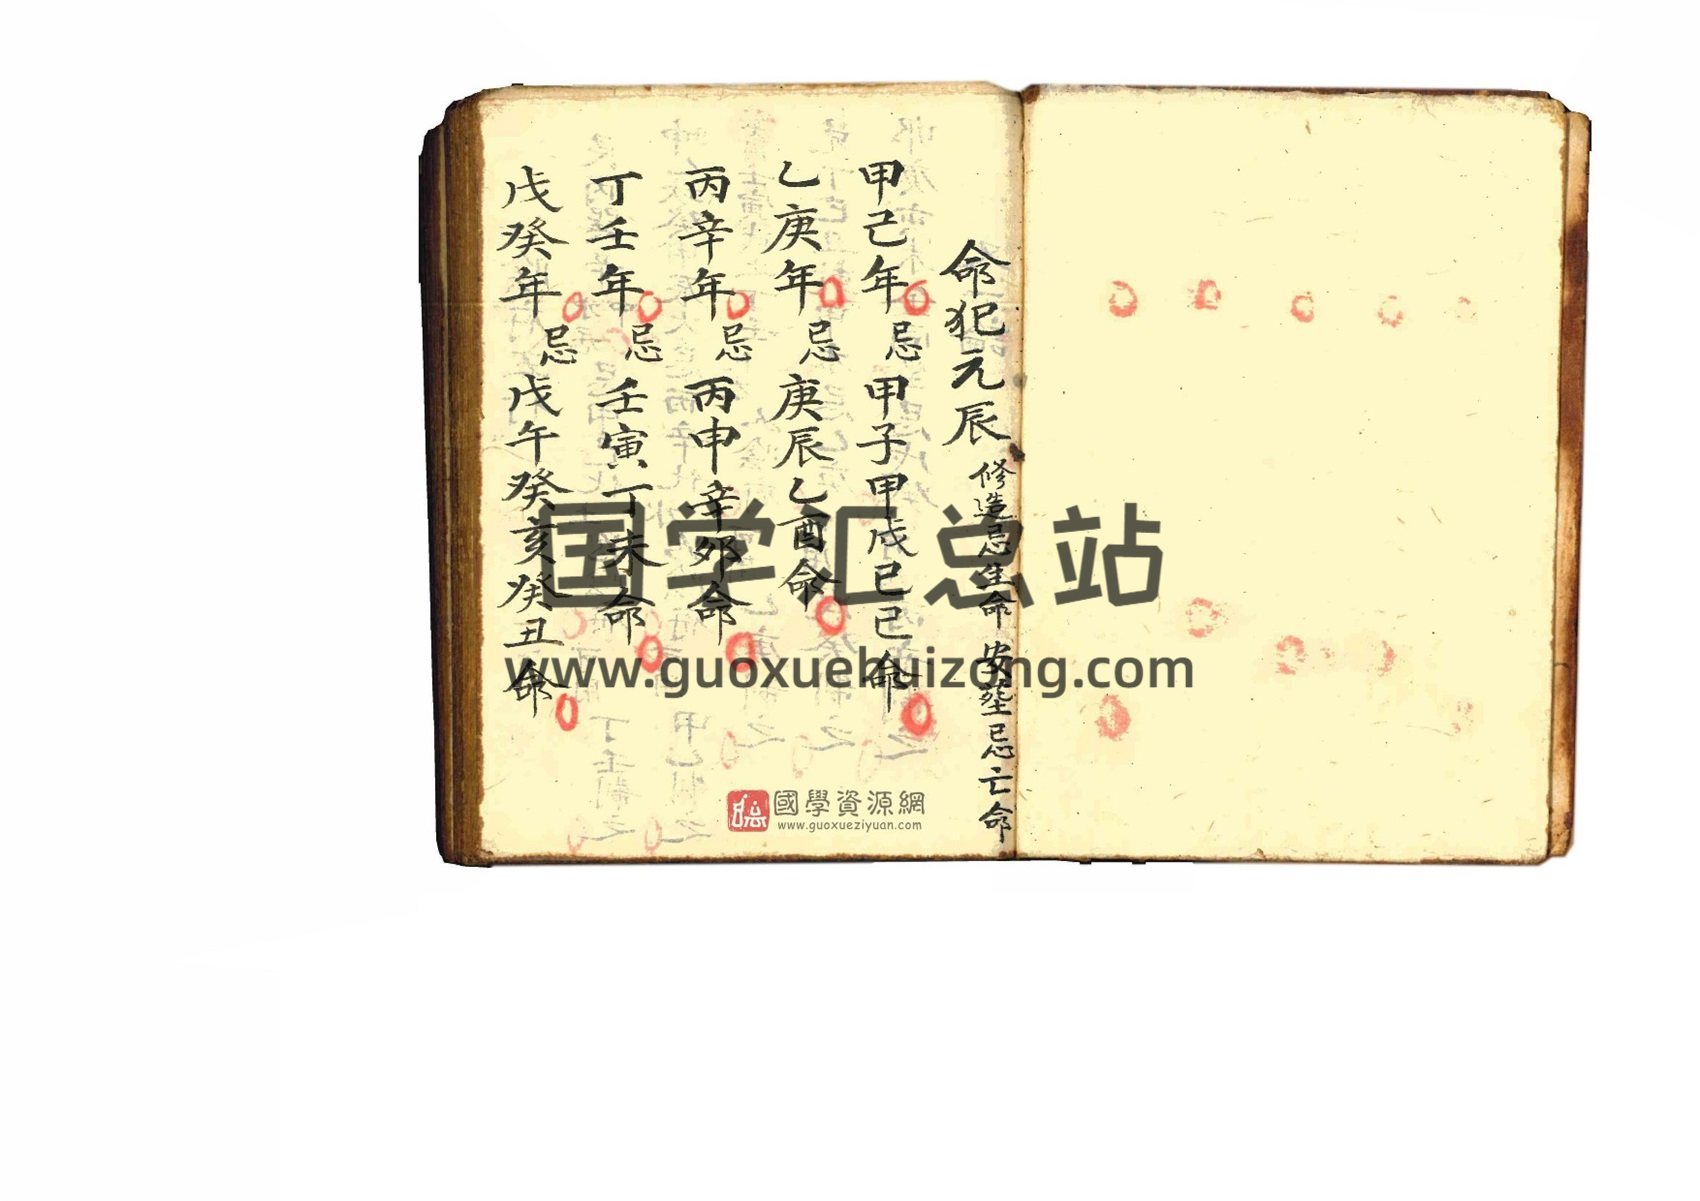 命犯元辰 修造忌生命 安塟忌亡命
甲己年 忌 甲子甲戌己巳命
乙庚年 忌 庚辰乙酉命
丙辛年 忌 丙申辛卯命
丁壬年 忌 壬寅丁未命
戊癸年 忌 戊午癸亥癸丑命
国学汇总站
www.guoxuehuizong.com
國學資源網
www.guoxueziyuan.com